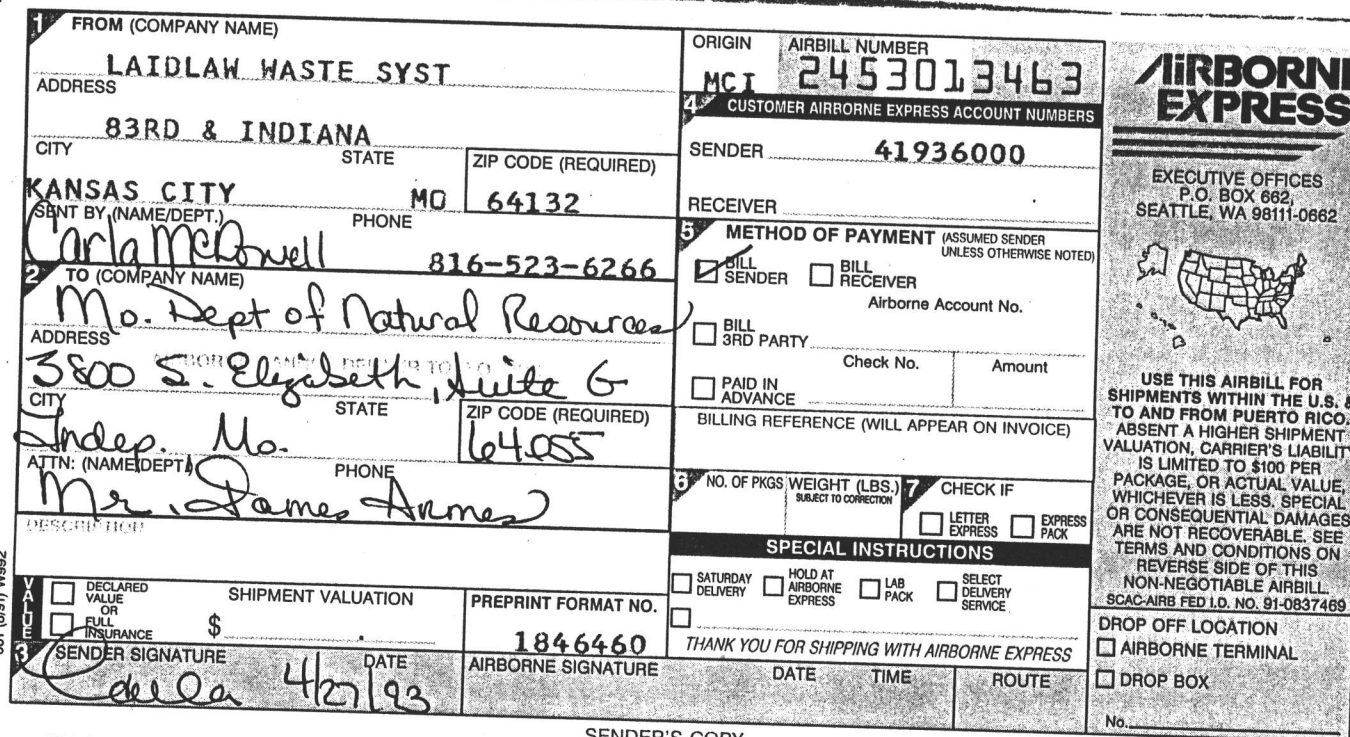 1 FROM (COMPANY NAME)
LAIDLAW WASTE SYST
ADDRESS
83RD & INDIANA
CITY STATE ZIP CODE (REQUIRED)
KANSAS CITY MO 64132
SENT BY (NAME/DEPT.) PHONE
Carla McDowell 816-523-6266
2 TO (COMPANY NAME)
Mo. Dept of Natural Resources
ADDRESS
3800 S. Elizabeth, Suite G
CITY STATE ZIP CODE (REQUIRED)
Indep. Mo. 64055
ATTN: (NAME/DEPT) PHONE
Mr. James Armes
DESCRIPTION
VALUE
DECLARED VALUE OR FULL INSURANCE
SHIPMENT VALUATION
$
PREPRINT FORMAT NO.
1846460
3 SENDER SIGNATURE DATE
4/27/93
AIRBORNE SIGNATURE DATE TIME ROUTE
ORIGIN AIRBILL NUMBER
MCI 2453013463
4 CUSTOMER AIRBORNE EXPRESS ACCOUNT NUMBERS
SENDER 41936000
RECEIVER
5 METHOD OF PAYMENT (ASSUMED SENDER UNLESS OTHERWISE NOTED)
BILL SENDER BILL RECEIVER
Airborne Account No.
BILL 3RD PARTY
Check No. Amount
PAID IN ADVANCE
BILLING REFERENCE (WILL APPEAR ON INVOICE)
6 NO. OF PKGS WEIGHT (LBS.) SUBJECT TO CORRECTION
7 CHECK IF
LETTER EXPRESS EXPRESS PACK
SPECIAL INSTRUCTIONS
SATURDAY DELIVERY HOLD AT AIRBORNE EXPRESS LAB PACK SELECT DELIVERY SERVICE
THANK YOU FOR SHIPPING WITH AIRBORNE EXPRESS
AIRBORNE
EXPRESS
EXECUTIVE OFFICES
P.O. BOX 662,
SEATTLE, WA 98111-0662
USE THIS AIRBILL FOR
SHIPMENTS WITHIN THE U.S. &
TO AND FROM PUERTO RICO.
ABSENT A HIGHER SHIPMENT
VALUATION, CARRIER'S LIABILITY
IS LIMITED TO $100 PER
PACKAGE, OR ACTUAL VALUE,
WHICHEVER IS LESS. SPECIAL
OR CONSEQUENTIAL DAMAGES
ARE NOT RECOVERABLE. SEE
TERMS AND CONDITIONS ON
REVERSE SIDE OF THIS
NON-NEGOTIABLE AIRBILL.
SCAC-AIRB FED I.D. NO. 91-0837469
DROP OFF LOCATION
AIRBORNE TERMINAL
DROP BOX
No.
SENDER'S COPY